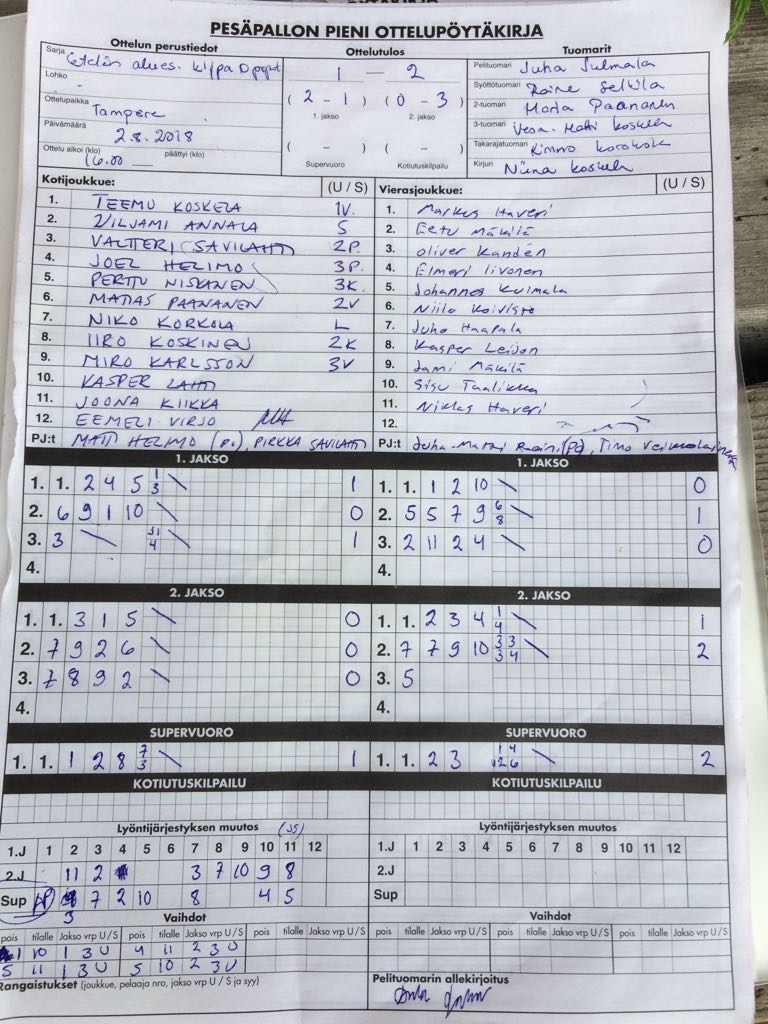 PESÄPALLON PIENI OTTELUPÖYTÄKIRJA
Ottelun perustiedot
Sarja
Lohko -
Ottelupaikka Tampere
Päivämäärä 2.8.2018
Ottelu alkoi (klo) 16.00 päättyi (klo)
Ottelutulos
1 — 2
(2 - 1) (0 - 3)
1. jakso 2. jakso
( - ) ( - )
Supervuoro Kotiutuskilpailu
Tuomarit
Pelituomari Juha Julmala
Syöttötuomari
2-tuomari Marja Paananen
3-tuomari Vesa-Matti Koskela
Takarajatuomari Kimmo
Kirjuri Niina Koskela
Kotijoukkue: (U / S)
1. TEEMU KOSKELA 1V.
2. VILJAMI ANNALA S
3. VALTTERI SAVILAHTI 2P.
4. JOEL HELIMO 3P.
5. PERTTU NISKANEN 3K.
6. MATIAS PAANANEN 2V
7. NIKO KORKOLA L
8. IIRO KOSKINEN 2K
9. MIRO KARLSSON 3V
10. KASPER LAHTI
11. JOONA KIIKKA
12. EEMELI VIRJO
PJ:t MATTI HELIMO (P.), PIRKKA SAVILAHTI
Vierasjoukkue: (U / S)
1. Markus Haveri
2. Eetu Mäkilä
3. Oliver Kandén
4. Elmeri Iivonen
5. Johannes Kulmala
6. Niilo Koivisto
7. Juho Haapala
8. Kasper
9. Jami Mäkilä
10. Sisu Taalikka
11. Niklas Haveri
12.
PJ:t Juha-Matti (PJ), Timo
1. JAKSO
1. 1. 2 4 5 1 3 \ 1
2. 6 9 1 10 \ 0
3. 3 \ 4 \ 1
4.
1. JAKSO
1. 1. 1 2 10 \ 0
2. 5 5 7 9 6 8 \ 1
3. 2 11 2 4 \ 0
4.
2. JAKSO
1. 1. 3 1 5 \ 0
2. 7 9 2 6 \ 0
3. 7 8 9 2 \ 0
4.
2. JAKSO
1. 1. 2 3 4 1 4 \ 1
2. 7 7 9 10 3 3 3 4 \ 2
3. 5
4.
SUPERVUORO
1. 1. 1 2 8 7 3 \ 1
SUPERVUORO
1. 1. 2 3 \ 2
KOTIUTUSKILPAILU
KOTIUTUSKILPAILU
Lyöntijärjestyksen muutos
1.J 1 2 3 4 5 6 7 8 9 10 11 12
2.J 11 2 3 7 10 9 8
Sup 3 7 2 10 8 4 5
Lyöntijärjestyksen muutos
1.J 1 2 3 4 5 6 7 8 9 10 11 12
2.J
Sup
Vaihdot
pois tilalle Jakso vrp U/S pois tilalle Jakso vrp U/S pois tilalle Jakso vrp U/S
1 10 1 3 U 4 11 2 3 U
5 11 1 3 U 5 10 2 3 U
Vaihdot
pois tilalle Jakso vrp U/S pois tilalle Jakso vrp U/S pois tilalle Jakso vrp U/S
Rangaistukset (joukkue, pelaaja nro, jakso vrp U / S ja syy)
Pelituomarin allekirjoitus